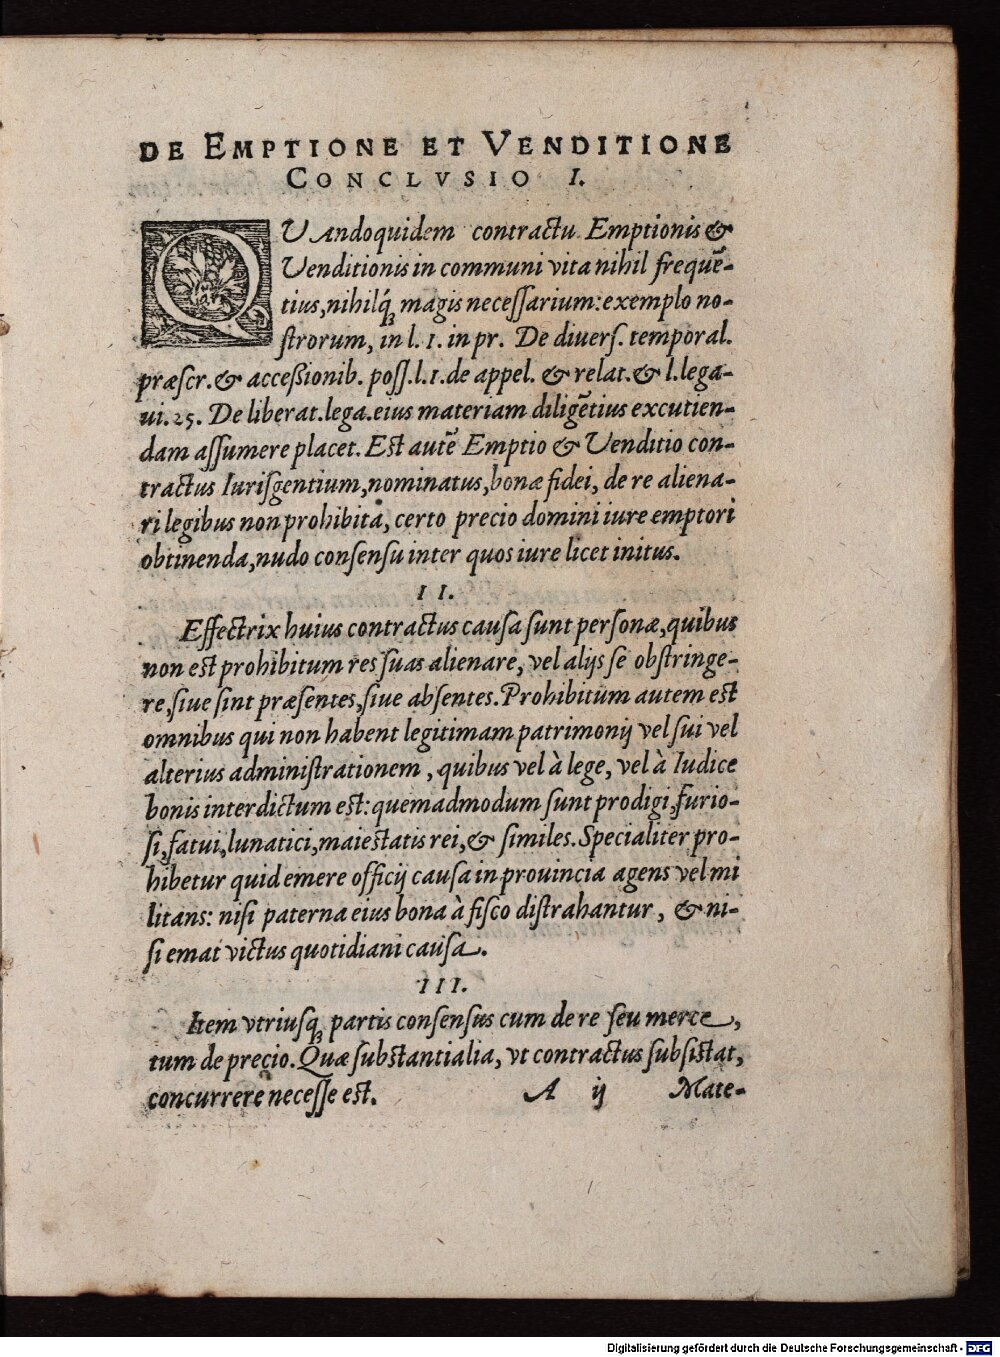 DE EMPTIONE ET VENDITIONE
CONCLVSIO I.
QUAndoquidem contractu Emptionis &
Venditionis in communi vita nihil frequē-
tius, nihilq́; magis necessarium: exemplo no-
strorum, in l. 1. in pr. De diuers. temporal.
præscr. & accessionib. poss. l. 1. de appel. & relat. & l. lega-
ui. 25. De liberat. lega. eius materiam diligētius excutien-
dam assumere placet. Est autē Emptio & Venditio con-
tractus Iurisgentium, nominatus, bonæ fidei, de re aliena-
ri legibus non prohibita, certo precio domini iure emptori
obtinenda, nudo consensu inter quos iure licet initus.
II.
Effectrix huius contractus causa sunt personæ, quibus
non est prohibitum res suas alienare, vel alijs se obstringe-
re, siue sint præsentes, siue absentes. Prohibitum autem est
omnibus qui non habent legitimam patrimonij vel sui vel
alterius administrationem, quibus vel à lege, vel à Iudice
bonis interdictum est: quemadmodum sunt prodigi, furio-
si, fatui, lunatici, maiestatis rei, & similes. Specialiter pro-
hibetur quid emere officij causa in prouincia agens vel mi
litans: nisi paterna eius bona à fisco distrahantur, & ni-
si emat victus quotidiani causa.
III.
Item vtriusq; partis consensus cum de re seu merce,
tum de precio. Quæ substantialia, vt contractus subsistat,
concurrere necesse est. A ij Mate-
Digitalisierung gefördert durch die Deutsche Forschungsgemeinschaft - DFG